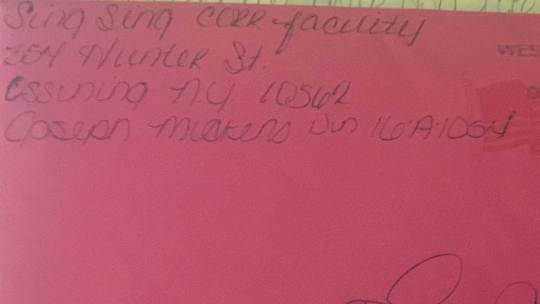 Sing Sing CORR facility
354 Hunter St.
Ossining NY 10562
Joseph Mickens Din 16A1054
WES